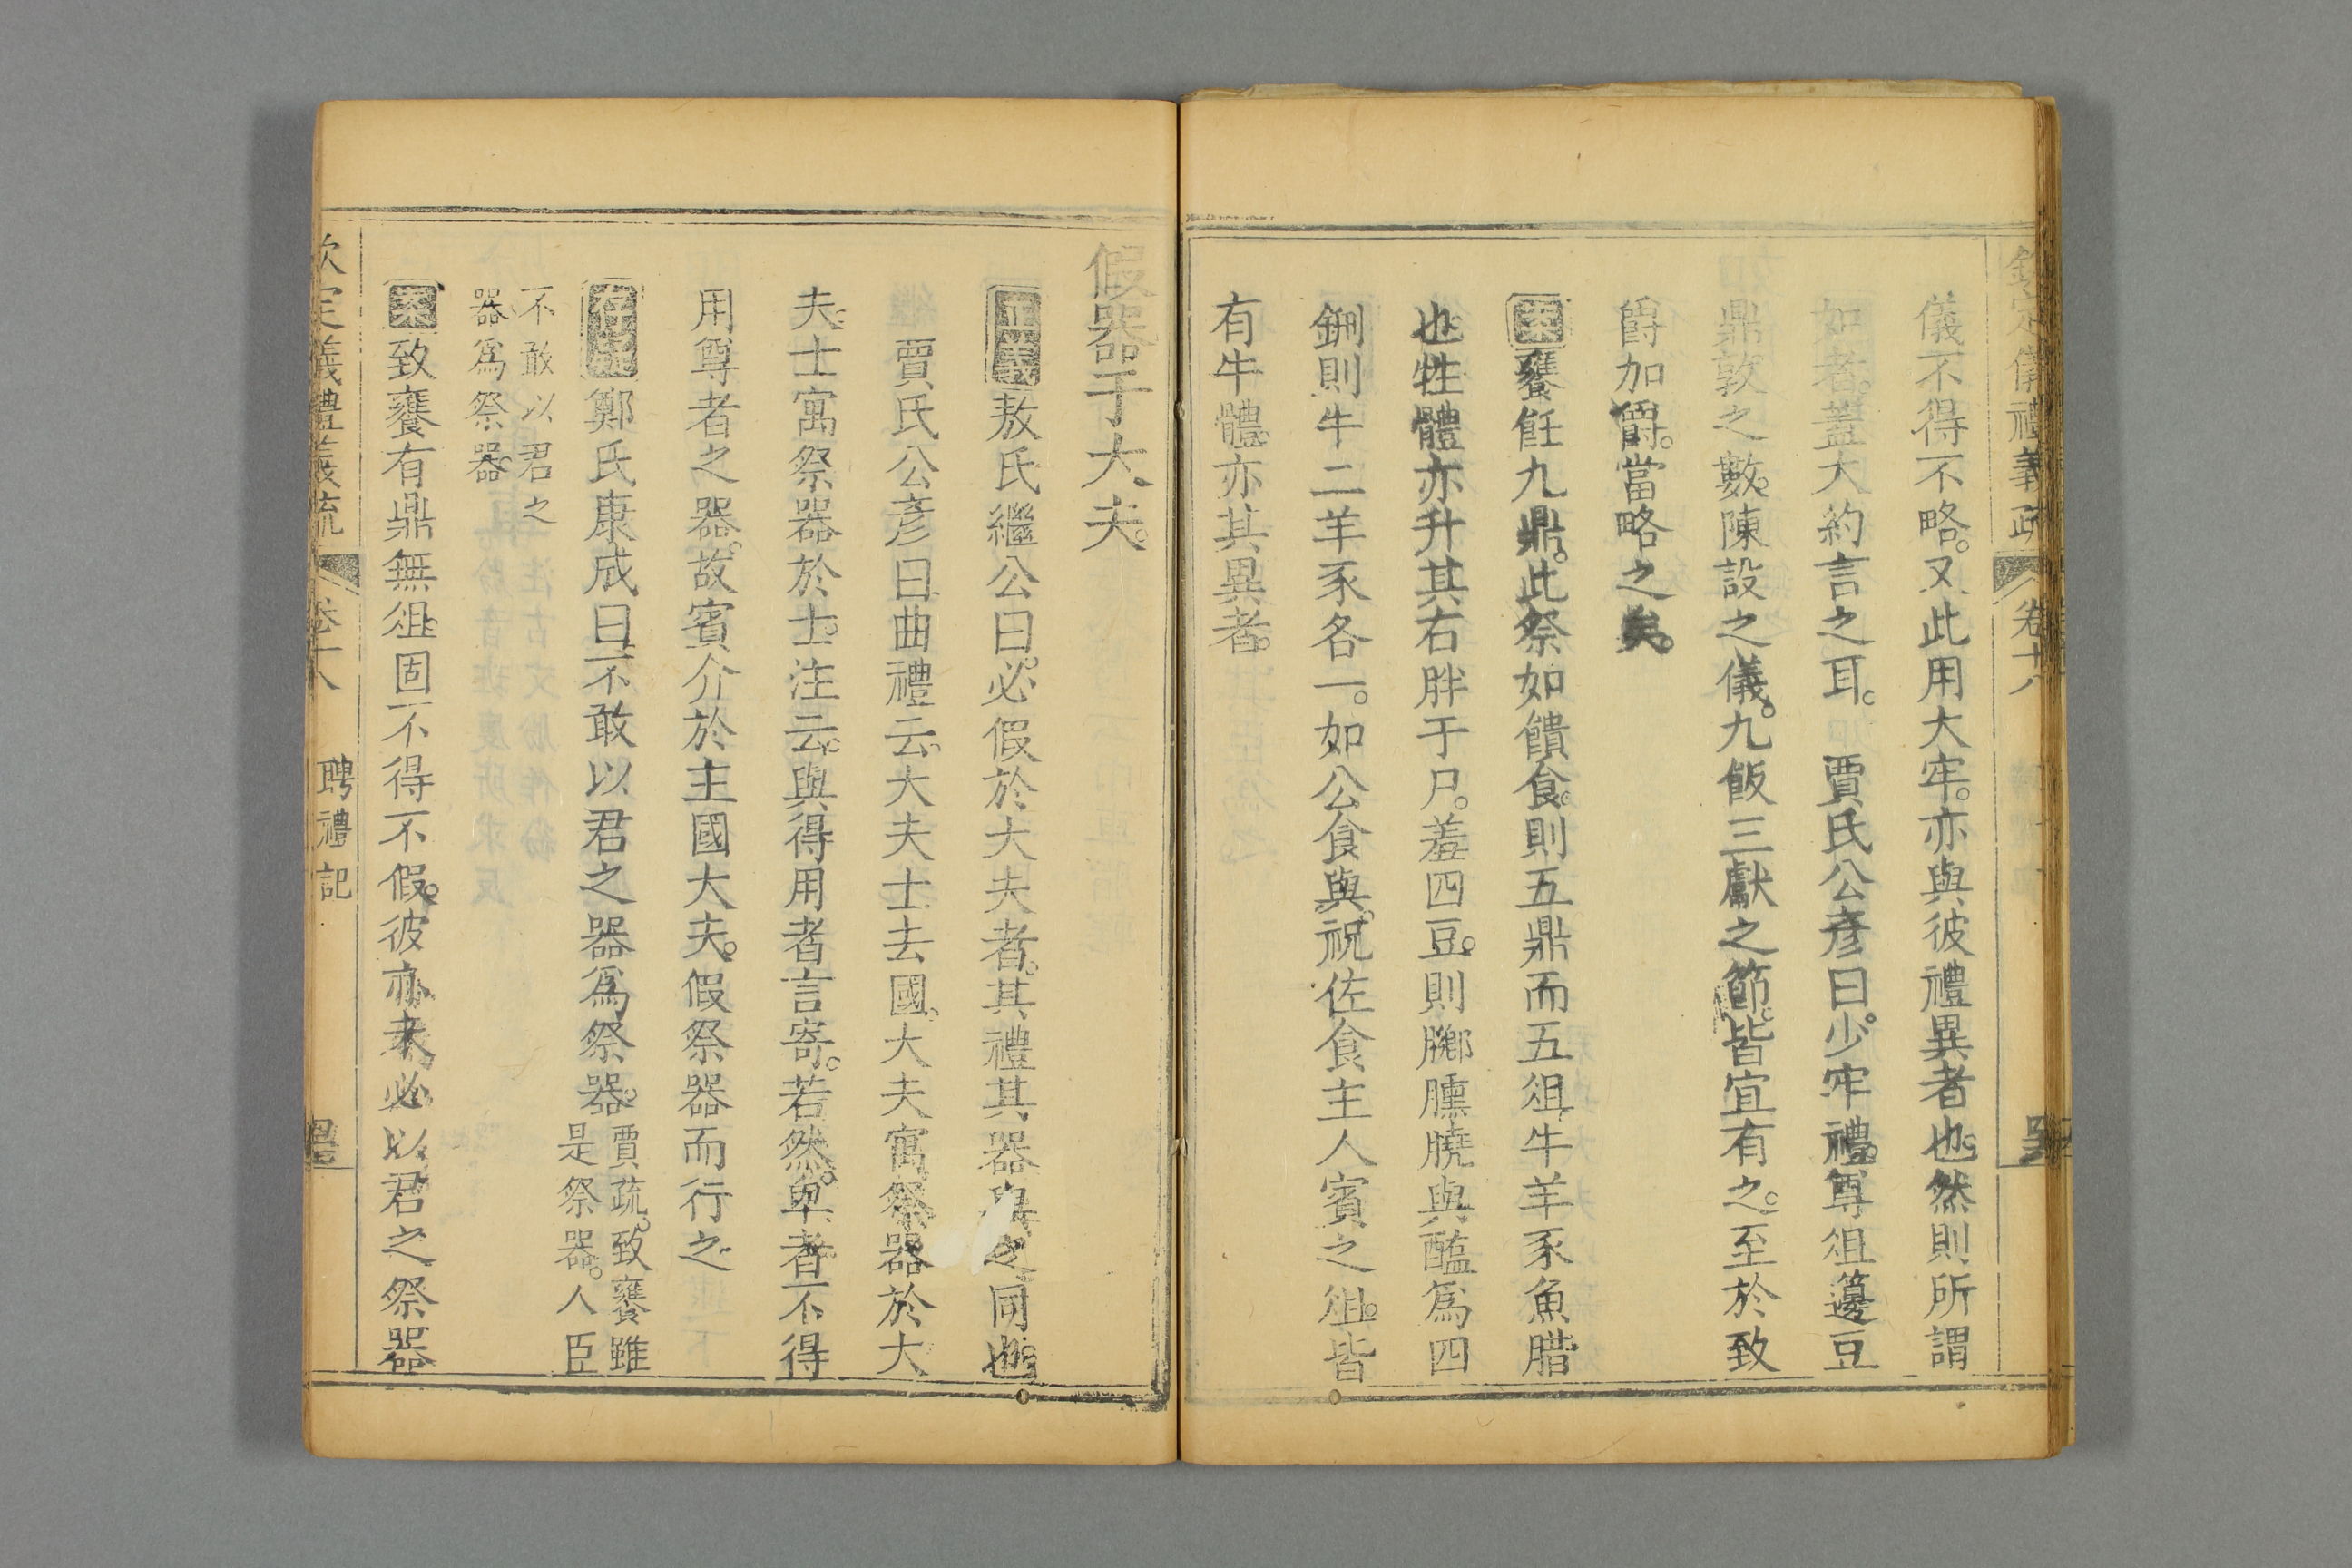 欽定儀禮義疏 卷十八
儀不得不略。又此用大牢。亦與彼禮異者也。然則所謂
如者。蓋大約言之耳。 賈氏公彥曰。少牢禮。尊俎籩豆
鼎敦之數。陳設之儀。九飯三獻之節。皆宜有之。至於致
爵加爵。當略之矣。
案饔飪九鼎。此祭如饋食。則五鼎而五俎。牛羊豕魚腊
也。牲體亦升其右胖于尸。羞四豆。則膷臐膮與醢爲四
鉶則牛二羊豕各一。如公食與。祝佐食主人賓之俎。皆。
有牛體。亦其異者。
假器于大夫。
正義敖氏繼公曰。必假於大夫者。其禮其器與之同也。
賈氏公彥曰曲禮云。大夫士去國。大夫寓祭器於大
夫。士寓祭器於士。注云。與得用者言寄。若然。卑者不得
用尊者之器。故賓介於主國大夫。假祭器而行之
存疑鄭氏康成曰不敢以君之器爲祭器。賈疏。致饔雖
是祭器。人臣
不敢以君之
器爲祭器。
案致饔有鼎無俎。固不得不假。彼亦未必以君之祭器
欽定儀禮義疏 卷十八 聘禮記